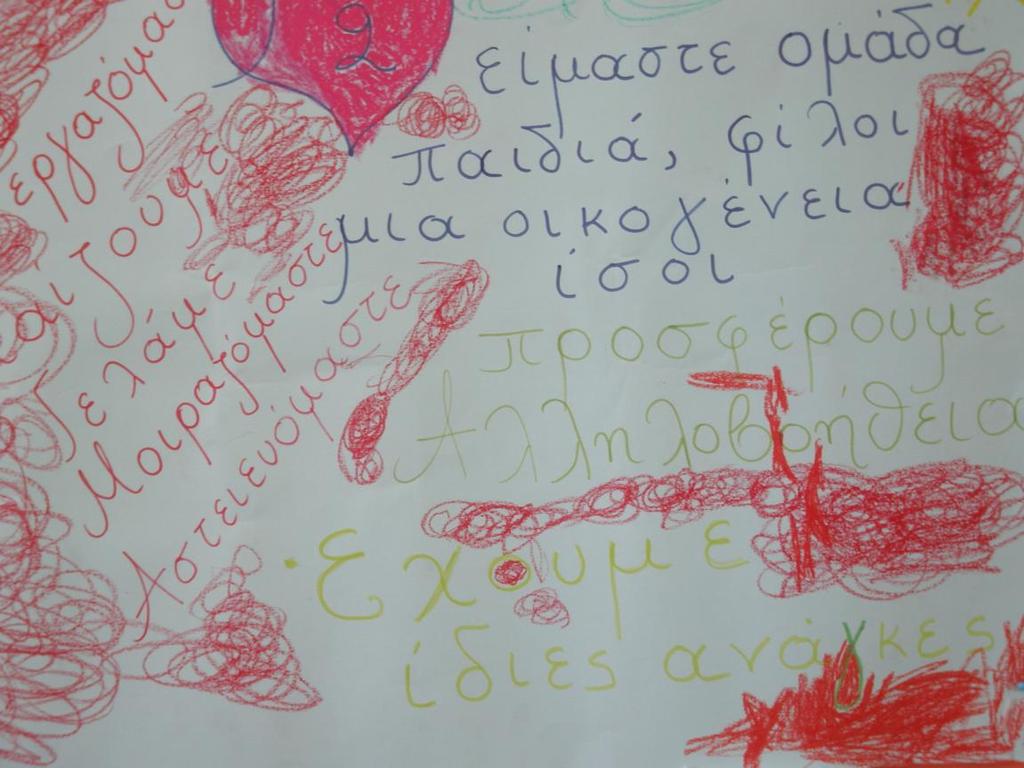 2
είμαστε ομάδα
παιδιά, φίλοι
μια οικογένεια
ίσοι
προσφέρουμε
Αλληλοβοήθεια
Έχουμε
ίδιες ανάγκες
Γελάμε
Μοιραζόμαστε
Αστειευόμαστε